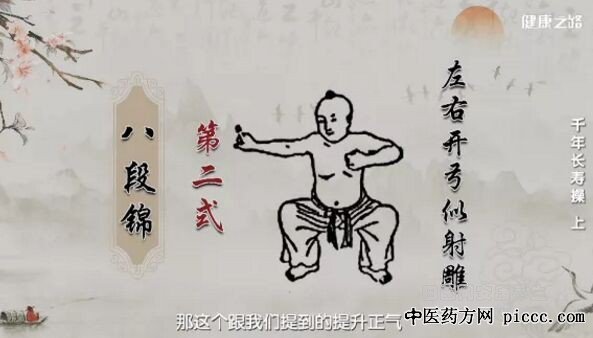 健康之路
左右开弓似射雕
第二式
八段锦
千年长寿操 上
那这个跟我们提到的提升正气
中医药方网 piccc.com